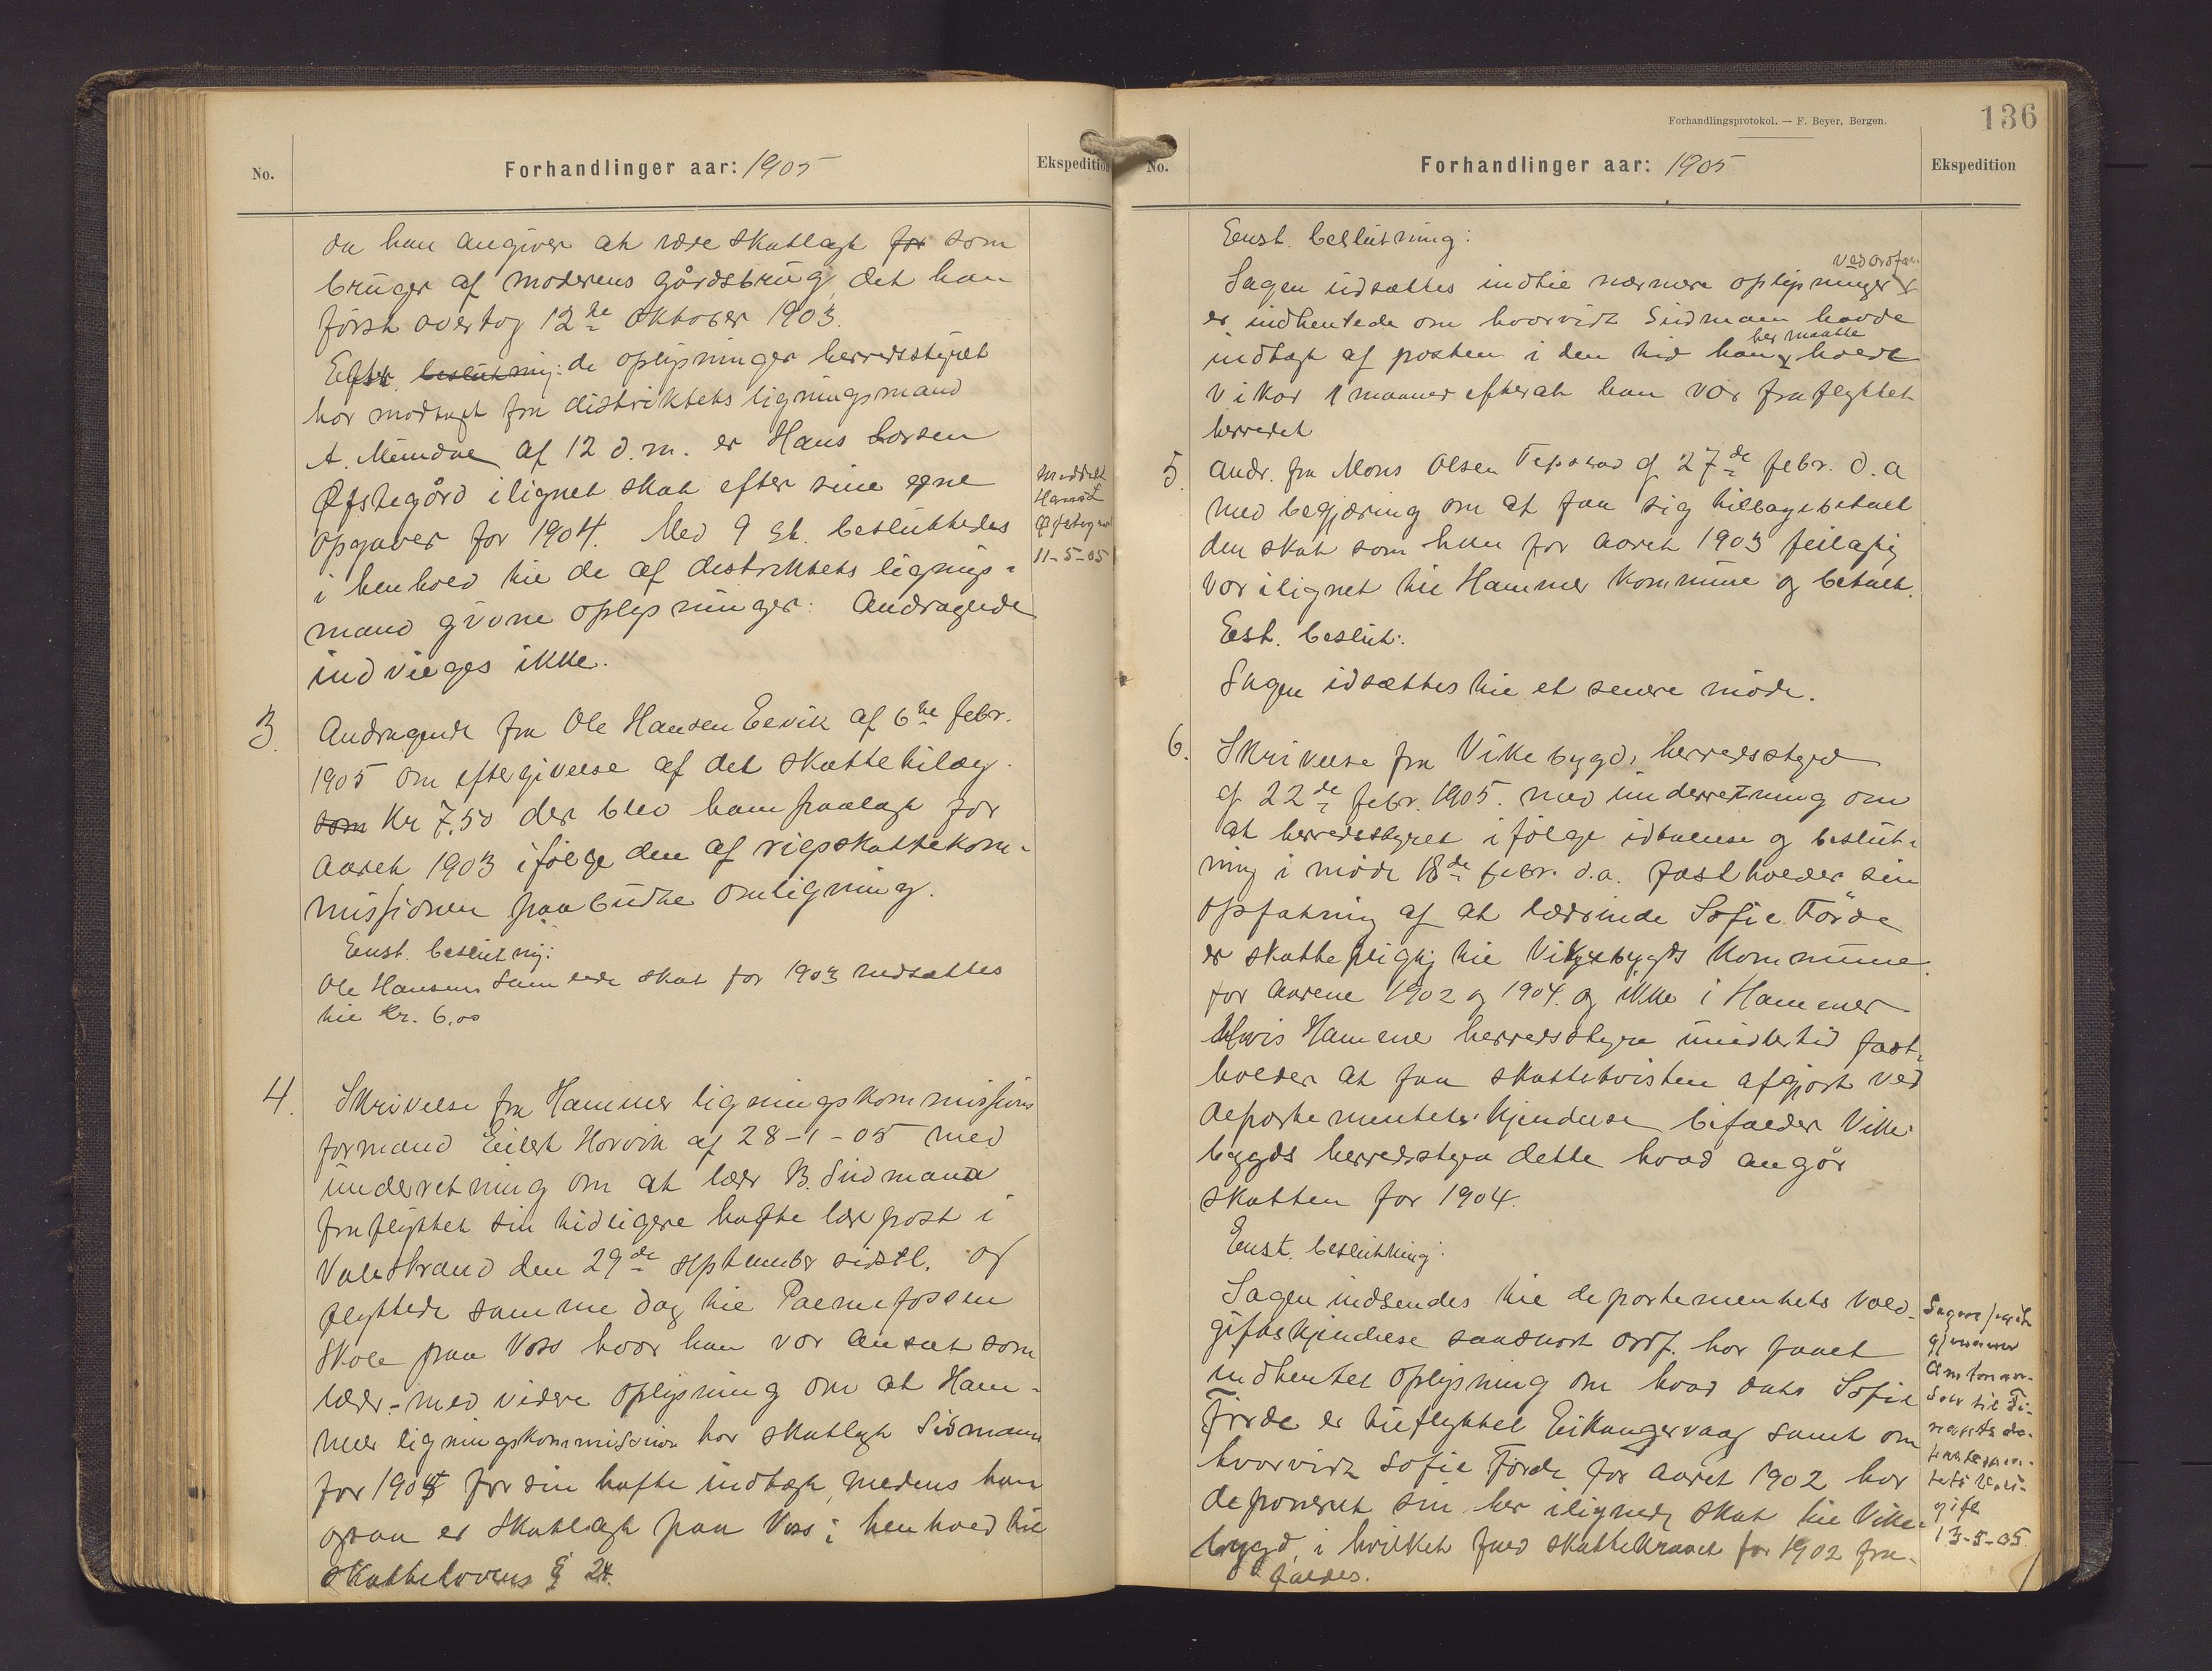 No.
Forhandlinger aar: 1905
Ekspedition
da han angiver at være skatlagt for som
bruger af moderens gårdsbrug, det han
først overtog 12te Oktober 1903.
Efter beslutning: de oplysninger herredsstyret
har modtaget fra distriktets ligningsmand
A. Mundal af 12 d.m. er Hans Larsen
Øfstegård ilignet skat efter sine egne
opgaver for 1904. Med 9 st. besluttedes
i henhold til de af distriktets lignings-
mand givne oplysninger: Andragende
indvilges ikke.
Meddelt
Hans L
Øfstegård
11-5-05
3. Andragende fra Ole Hansen Eevik af 6te febr.
1905 om eftergivelse af det skattetilæg
som Kr 7.50 der blev ham paalagt for
aaret 1903 ifølge den af rigsskattekom-
missionen paabudne omligning.
Enst. beslutning:
Ole Hansens samlede skat for 1903 nedsættes
til Kr. 6,00
4. Skrivelse fra Hammer ligningskommissions
formand Eilert Horvik af 28-1-05 med
underretning om at lærer B. Sudmann
fraflyttet sin tidligere hafte lærpost i
Valestrand den 29de september sidstl. og
flyttede samme dag til Palmefossen
Skole paa Voss hvor han var ansat som
lærer - med videre oplysning om at Ham-
mer ligningskommission har skatlagt Sudmann
for 1904 for sin hafte indtægt, medens han
ogsaa er skatlagt paa Voss i henhold til
skattelovens § 24.
Forhandlingsprotokol. — F. Beyer, Bergen.
136
No.
Forhandlinger aar: 1905
Ekspedition
Enst. beslutning:
ved ordfør.
Sagen udsættes indtil nærmere oplysninger
er indhentede om hvorvidt Sudmann havde
her maatte
indtægt af posten i den tid han holdt
vikar 1 maaned efterat han var fraflyttet
herredet
5. Andr. fra Mons Olsen Tepstad af 27de febr. d.a
med begjæring om at faa sig tilbagebetalt
den skat som han for aaret 1903 feilagtig
var ilignet til Hammer kommune og betalt.
Est. beslut:
Sagen udsættes til et senere møde.
6. Skrivelse fra Vikebygds herredsstyre
af 22de febr. 1905. med underretning om
at herredsstyret ifølge udtalelse og beslut-
ning i møde 18de febr. d.a. fastholder sin
opfatning af at lærerinde Sofie Førde
er skattepligtig til Vikebygds kommune
for aarene 1902 og 1904. og ikke i Hammer
Hvis Hammer herredsstyre imidlertid fast-
holder at faa skattetvisten afgjort ved
departementets kjendelse bifalder Vike-
bygds herredsstyre dette hvad angår
skatten for 1904.
Enst. beslutning:
Sagen indsendes til departementets vold-
giftskjendelse saasnart ordf. har faaet
indhentet oplysning om hvad dato Sofie
Førde er tilflyttet Eikangervaag samt om
hvorvidt Sofie Førde for aaret 1902 har
deponeret sin her ilignede skat til Vike-
bygd, i hvilket fald skattekravet for 1902 fra-
faldes.
Sagen
gjennem
Amton
til Fi-
nants de-
partemen-
tets vold-
gift
13-5-05.